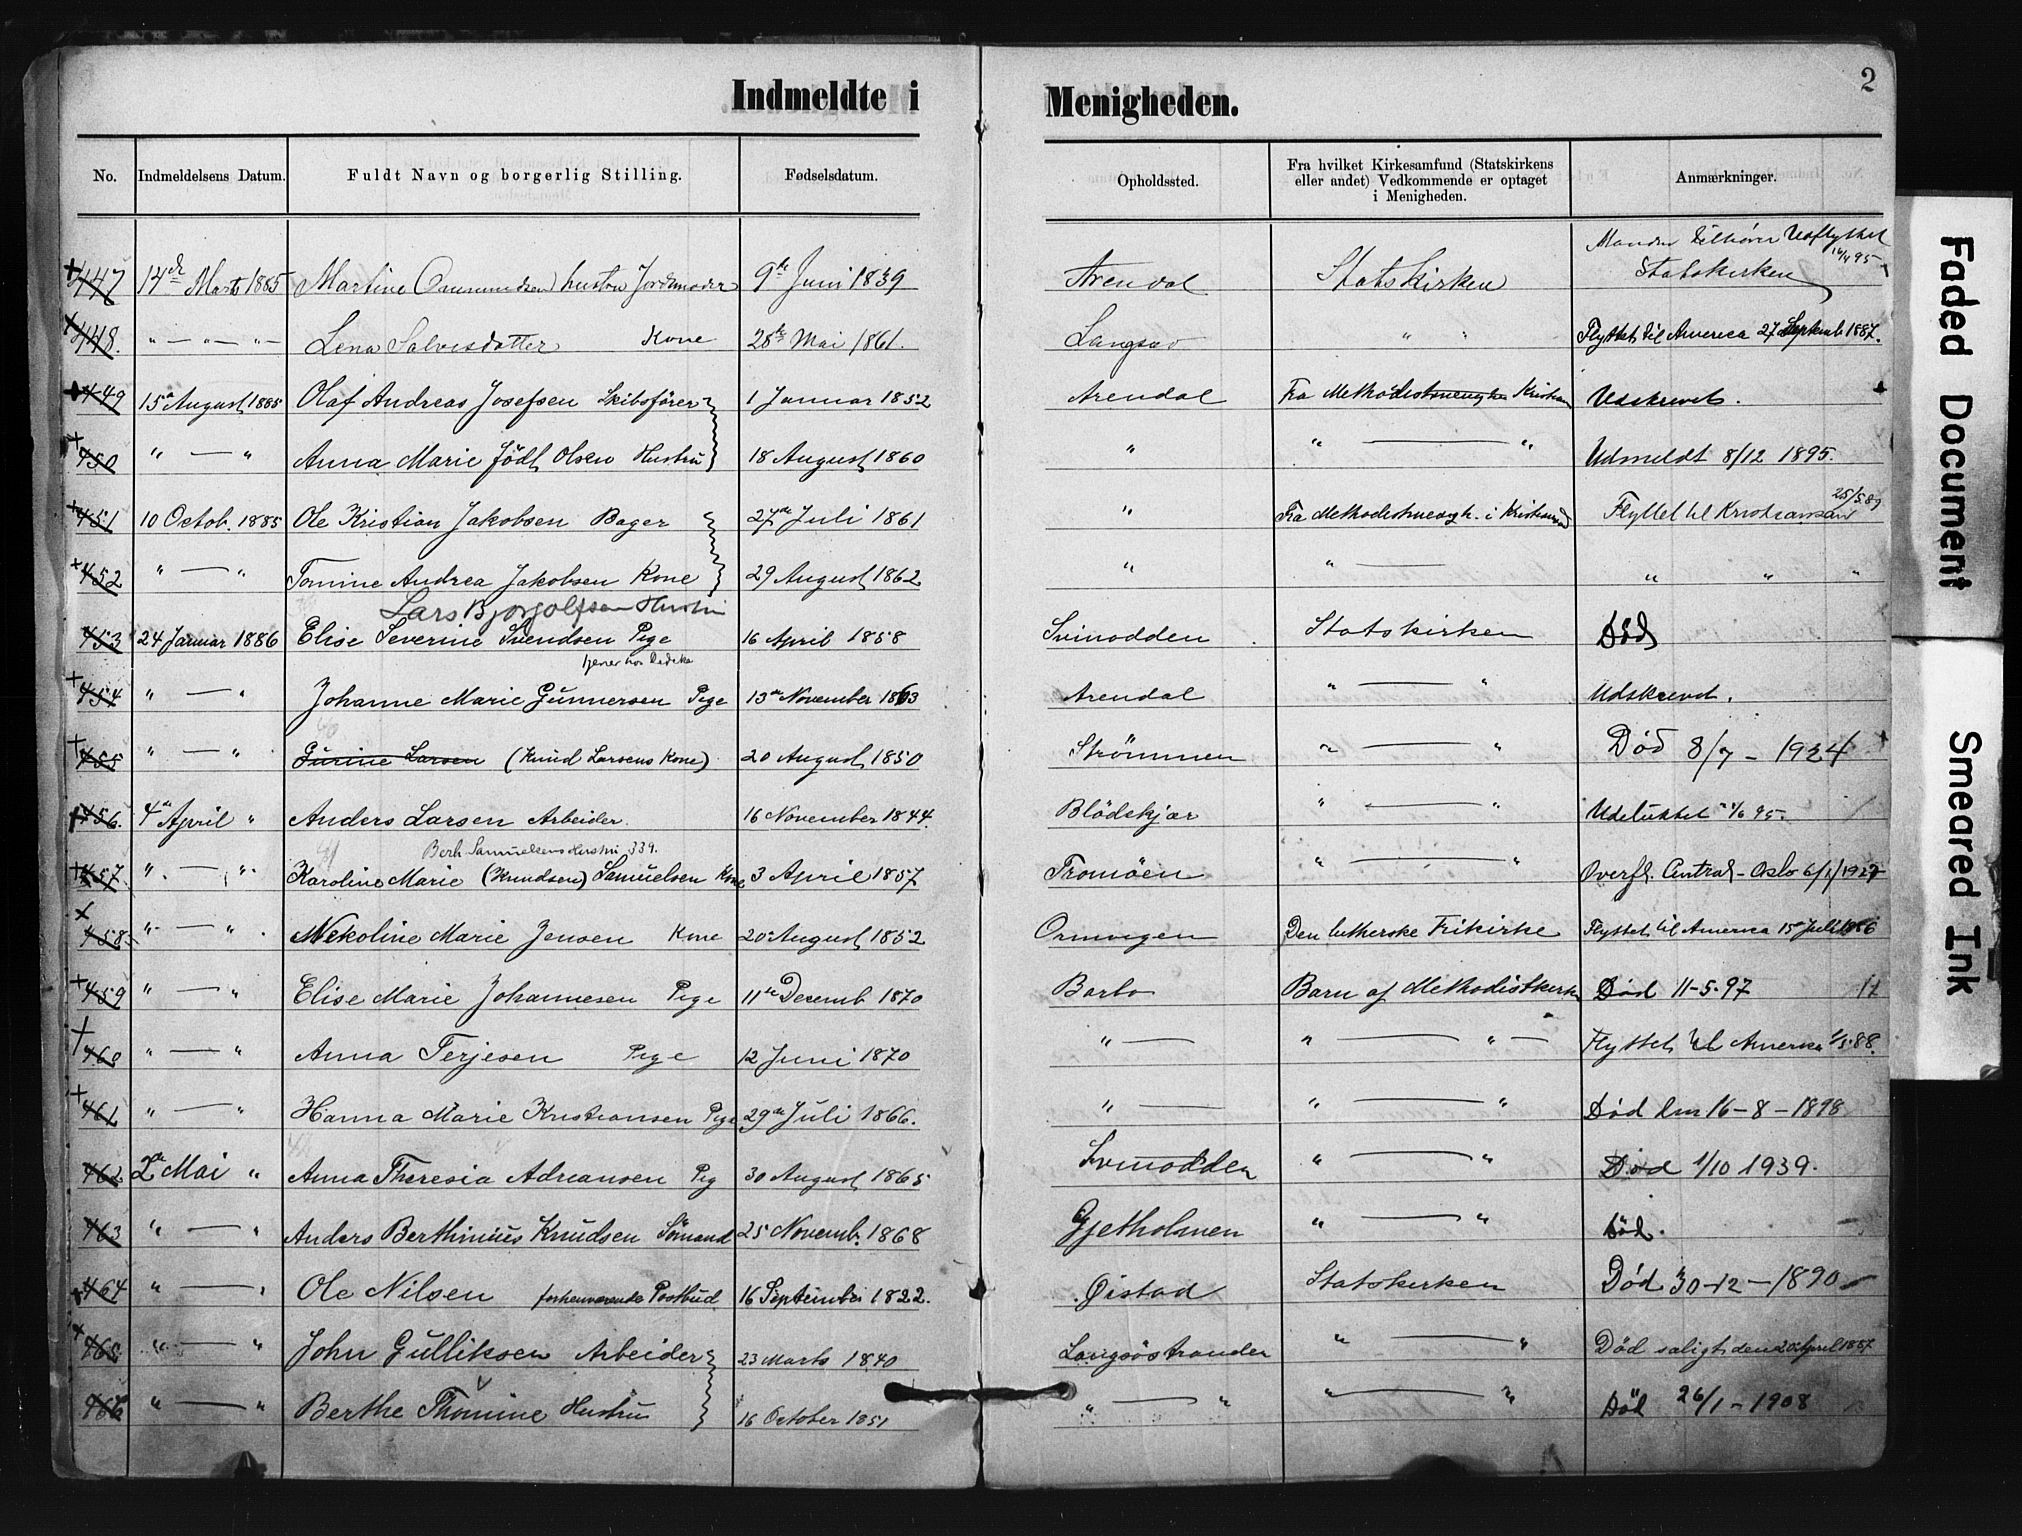 Indmeldte i Menigheden.
2
No. Indmeldelsens Datum. Fuldt Navn og borgerlig Stilling. Fødselsdatum. Opholdssted. Fra hvilket Kirkesamfund (Statskirkens eller andet) Vedkommende er optaget i Menigheden. Anmærkninger.
Manden tilhører Udflyttet 14/4 95
447 14de Marts 1885 Martine Ommundsen hustru Jordmoder 9de Juni 1839 Arendal Statskirken Statskirken
448. " - " - " - Lena Salvesdatter Kone 28de Mai 1861. Langsæv " " Flyttet til America 27 Septemb 1887.
449 15de August 1885 Olaf Andreas Josefsen Skibsfører 1 Januar 1852 Arendal Fra Methodistmenghe Kristian Udskrevet.
450 " — " Anna Marie Født Olsen Hustru 18 August 1860 " " — " Udmeldt 8/12 1895.
451 10 Octob. 1885 Ole Kristian Jakobsen Bager 27de Juli 1861 " Fra Methodistmengh. i Kristiansand Flyttet til Kristiansand 25/5.89
452 " — " Tomine Andrea Jakobsen Kone 29 August 1862 " " — " " "
Lars Bjorjolfsen Hustru
453 24 Januar 1886 Elise Severine Svendsen Pige 16 April 1858 Svinodden Statskirken Død
tjener hos Dedeke
454 " — " Johanne Marie Gunnersen Pige 13de November 1863 Arendal " — " Udskrevet.
455 " — " Gurine Larsen (Knud Larsens Kone) 20 August 1850 Strømmen " — " Død 8/7 - 1924
456. 4de April " Anders Larsen Arbeider. 16 November 1844. Blødekjær " — " Udelukket /6 95.
Berh Samuelsens Hustru 339.
457. " — " Karoline Marie (Knudsen) Samuelsen Kone 3 April 1857 Tromøen " — " Overfl. Central - Oslo 6/1/1927
458 " — " Nekoline Marie Jensen Kone 20de August 1852 Omvigen Den lutherske Frikirke Flyttet til America 15de Juli 1886
459 " — " Elise Marie Johannesen Pige 11te Decemb 1870 Barbo Barn af Methodistkirk Død 11-5-97
460 " — " Anna Terjesen Pige 12 Juni 1870 " — " — " — Flyttet til Amerika /5 88.
461 " — " Hanna Marie Kristiansen Pige 29de Juli 1866. " — " — " Død den 16-8-1898
462 2de Mai " Anna Theresia Adreansen Pig 30 August 1865 Svinodden " — " Død 1/10 1939.
463 " — " Anders Berthinius Knudsen Sømand 25 Novemb. 1868 Gjetholmen " — " Død.
464 " — " Ole Nilsen forhenværende Postbud 16 September 1822. Øistad Statskirken Død 30-12-1890
465 " — " John Gulliksen Arbeider 23 Marts 1840 Langsøstranden " — " Død saligt den 20 April 1887
466 " — " Berthe Thomine Hustru 16 October 1851 " — " " — " Død 26/1 - 1908
Faded Document
Smeared Ink